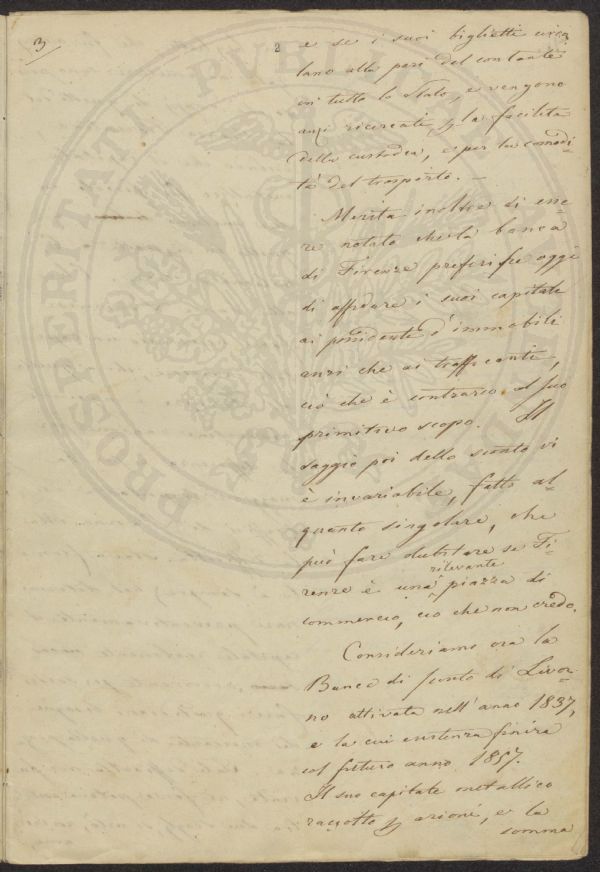 3
2
e se i suoi biglietti circo
lano alla pari del contante
in tutto lo Stato, e vengono
anzi ricercati, p la facilità
della custodia, e per la comodi-
tà del trasporto. —
Merita inoltre di esse-
re notato che la banca
di Firenze preferisce oggi
di affidare i suoi capitali
ai possidenti d'immobili
anzi che ai trafficanti,
ciò che è contrario al suo
primitivo scopo. Il
saggio poi dello sconto vi
è invariabile, fatto al-
quanto singolare, che
può fare dubitare se Fi-
renze è una rilevante piazza di
commercio, ciò che non credo.
Consideriamo ora la
Banca di sconto di Livor-
no attivata nell'anno 1837,
e la cui esistenza finirà
col futuro anno 1857.
Il suo capitale metallico
raccolto p azioni, e la
somma
PROSPERITATI PVBLICAE